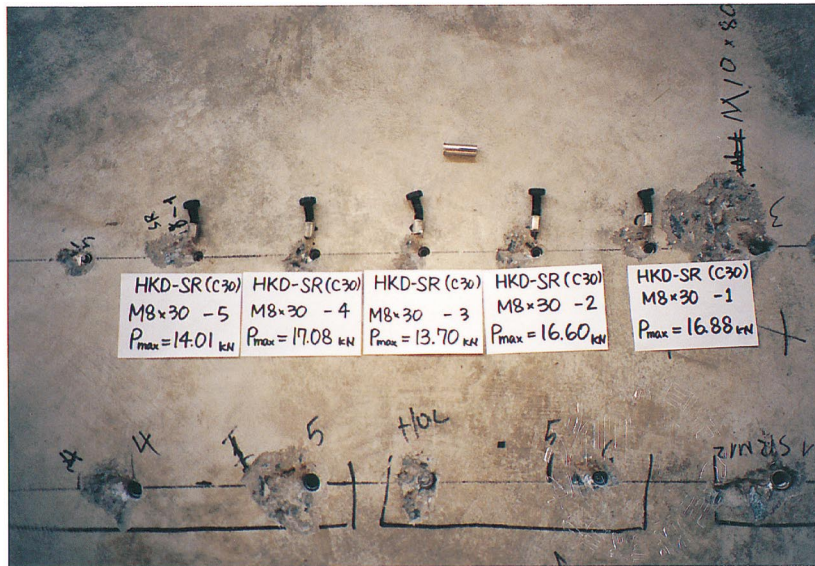 M10 x 80
SR
8-1
3
HKD-SR (C30)
M8×30 -5
Pmax = 14.01 KN
HKD-SR (C30)
M8×30 -4
Pmax = 17.08 KN
HKD-SR (C30)
M8×30 -3
Pmax = 13.70 KN
HKD-SR (C30)
M8×30 -2
Pmax = 16.60 KN
HKD-SR (C30)
M8×30 -1
Pmax = 16.88 KN
4
5
5
1 SRM12